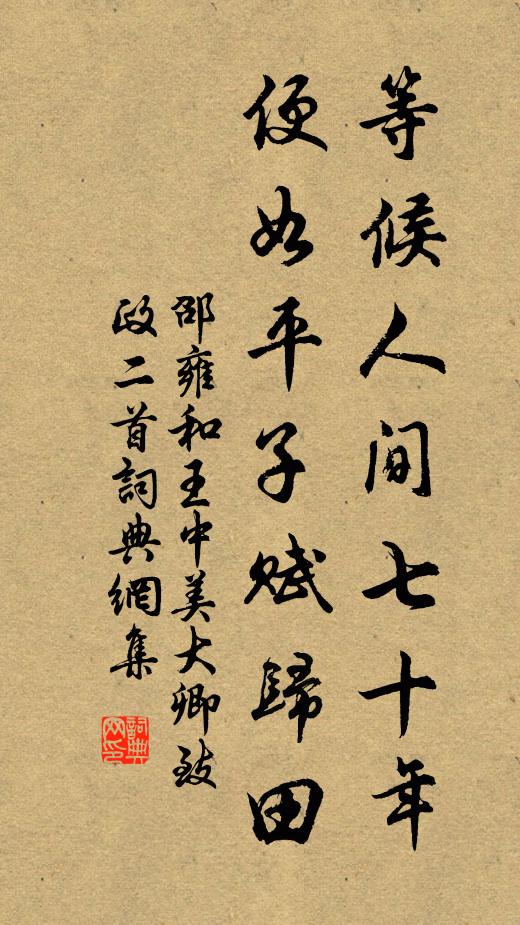 等候人間七十年
便如平子賦歸田
邵雍和王中美大卿致
政二首詞典網集
詞典
网印